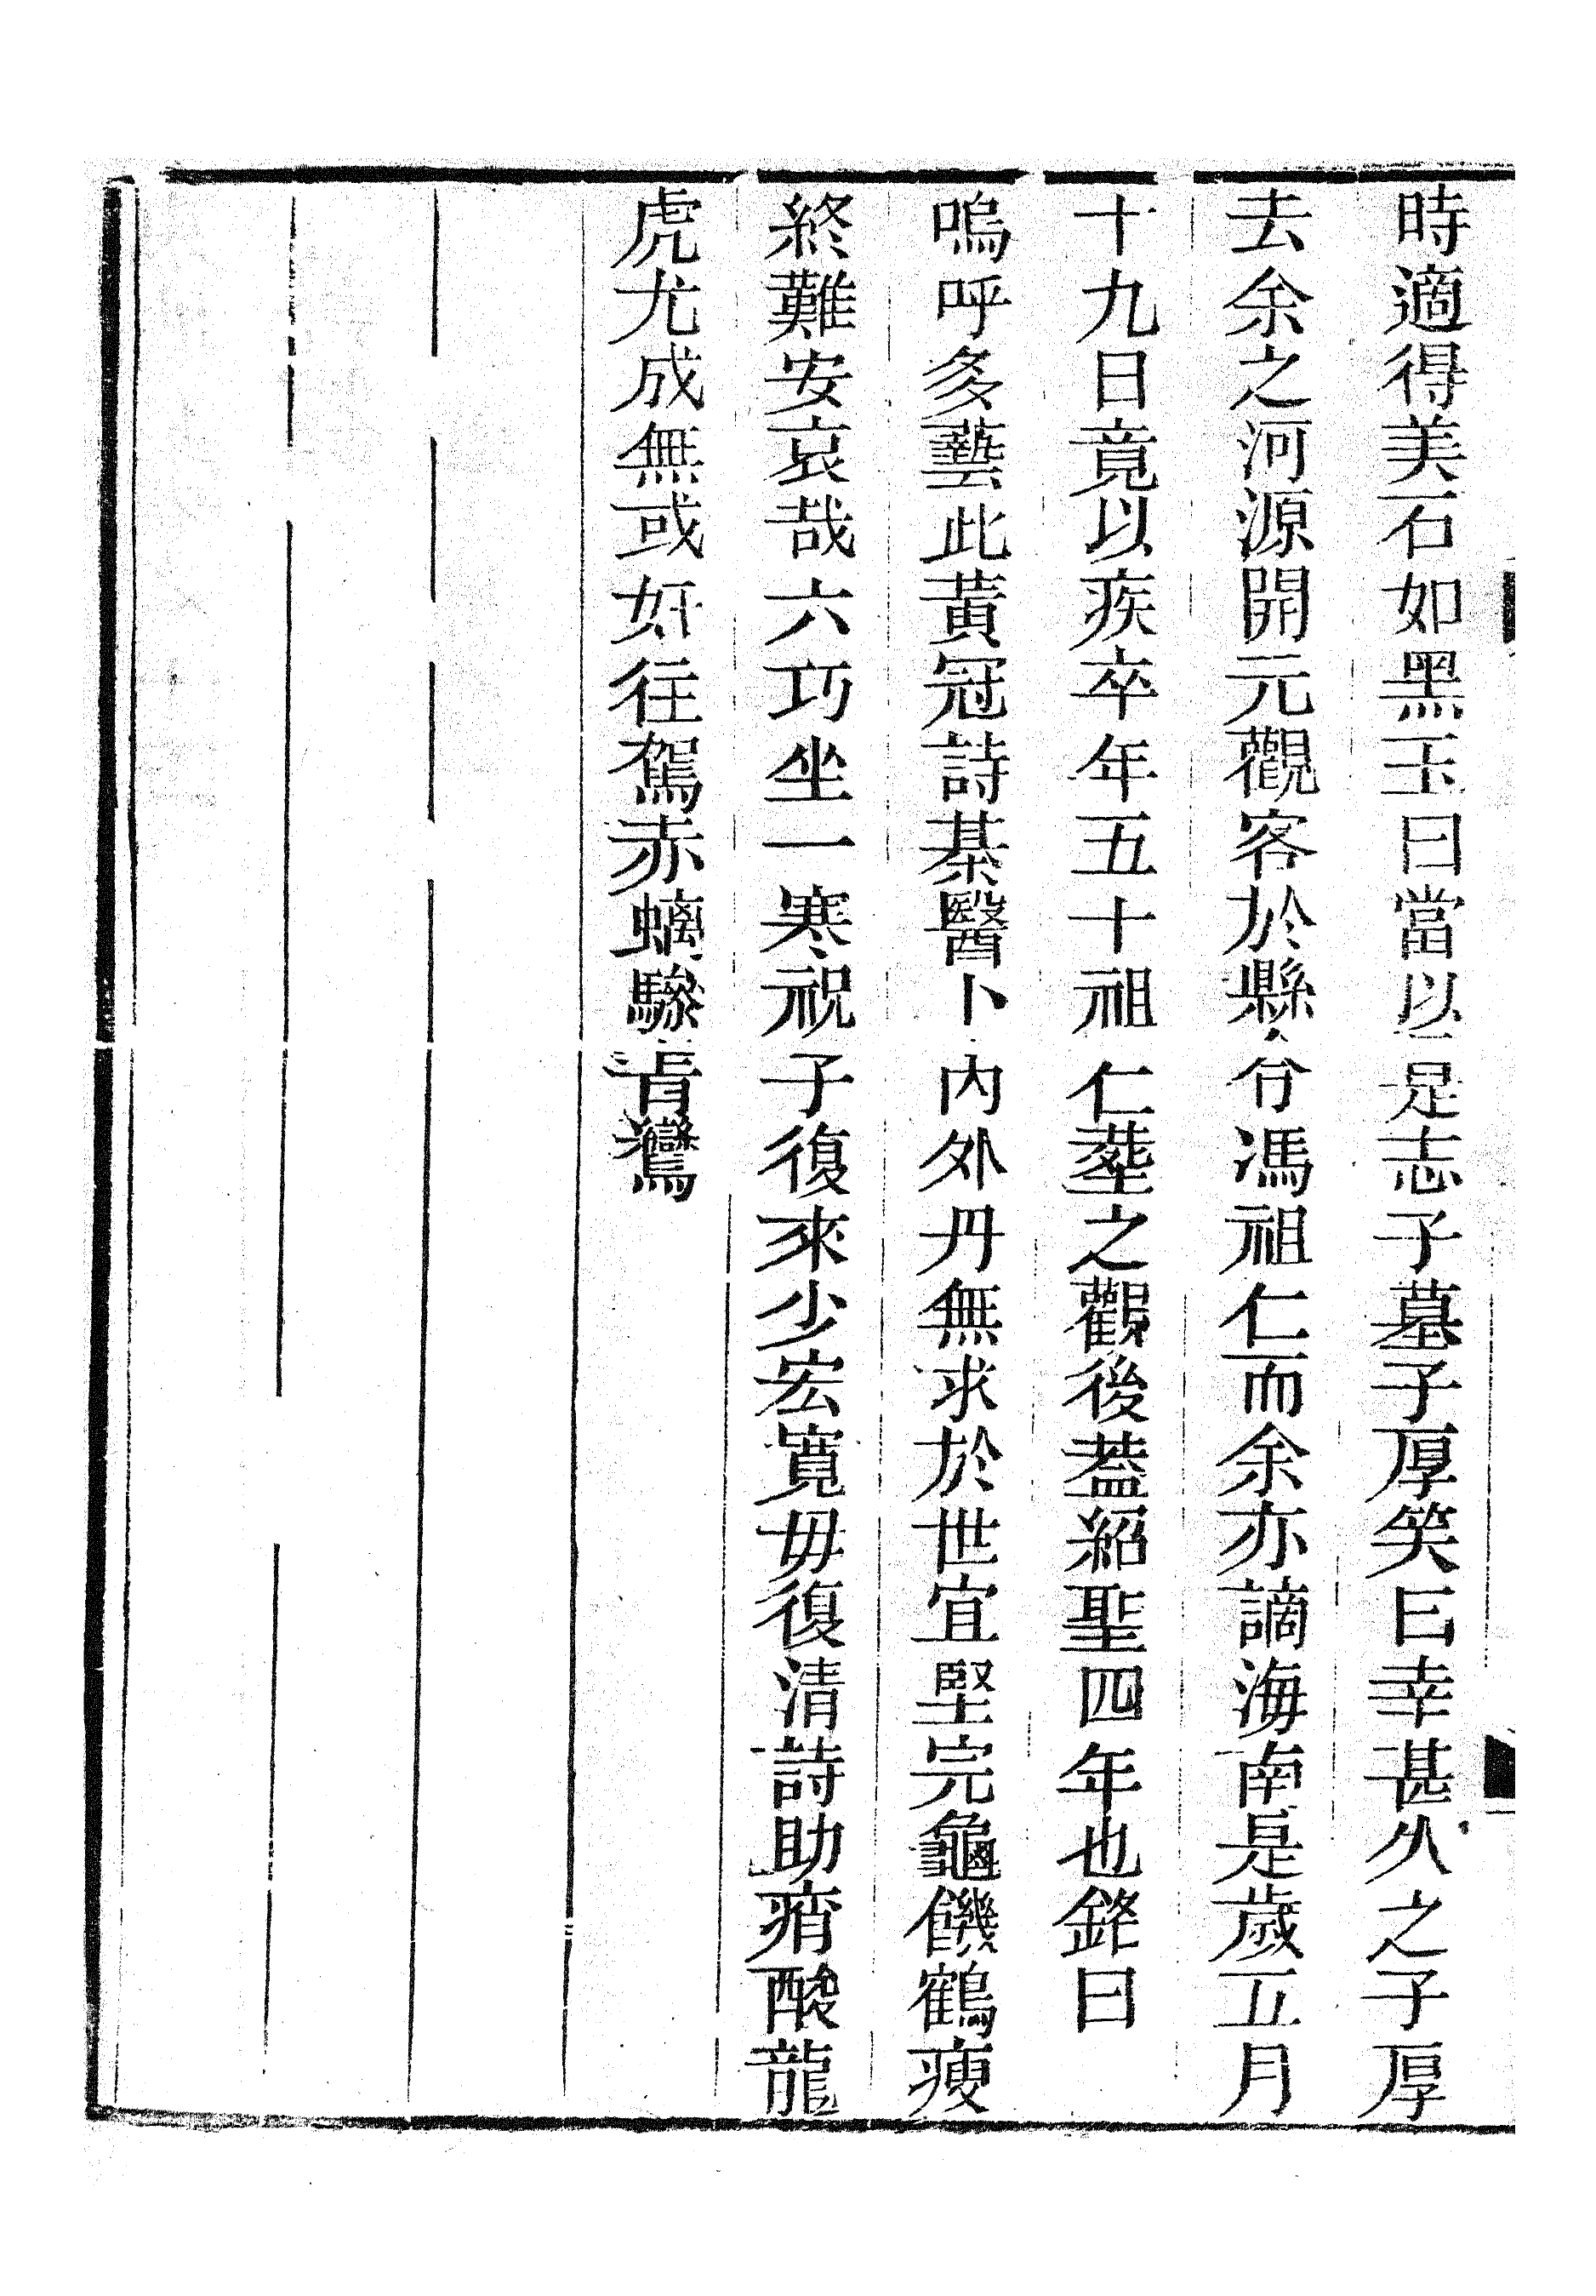 時適得美石如黑玉曰當以是志子墓子厚笑曰幸甚久之子厚
去余之河源開元觀客於縣令馮祖仁而余亦謫海南是歲五月
十九日竟以疾卒年五十祖仁塟之觀後葢紹聖四年也銘曰
嗚呼多藝此黃冠詩棊醫卜內外丹無求於世宜堅完龜饑鶴瘦
終難安哀哉六巧坐一寒祝子復來少宏寬毋復清詩助痟酸龍
虎尤成無或奸往駕赤螭驂青鸞